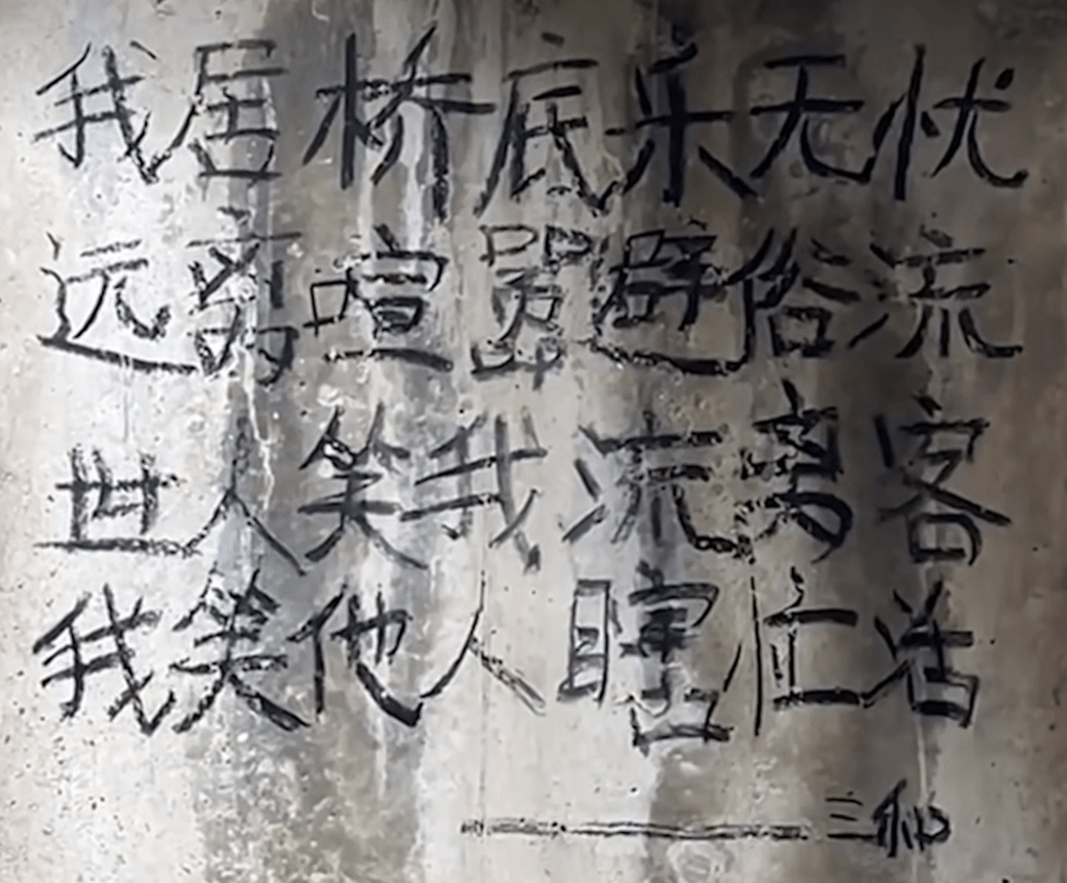 我居桥底乐无忧
远离喧嚣避俗流
世人笑我流离客
我笑他人瞎忙活
——三和